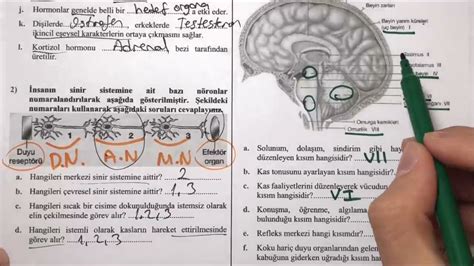 j. Hormonlar genelde belli bir hedef organa a etki eder.
k. Dişilerde östrojen, erkeklerde Testesteron
ikincil eşeysel karakterlerin ortaya çıkmasını sağlar.
l. Kortizol hormonu Adrenal bezi tarafından
üretilir.
2) İnsanın sinir sistemine ait bazı nöronlar
numaralandırılarak aşağıda gösterilmiştir. Şekildeki
numaraları kullanarak aşağıdaki soruları cevaplayınız.
1 2 3
Duyu
reseptörü
D.N. A.N M.N.
Efektör
organ
a. Hangileri merkezi sinir sistemine aittir? 2
b. Hangileri çevresel sinir sistemine aittir? 1,3
c. Hangileri sıcak bir cisime dokunulduğunda istemsiz olarak
elin çekilmesinde görev alır? 1,2,3
d. Hangileri istemli olarak kasların hareket ettirilmesinde
görev alır? 1,2,3
Beyin zarları
Beyin yarım küreleri
(uç beyin) I
Omurga kemikleri
Omurilik VIII
a. Solunum, dolaşım, sindirim gibi
düzenleyen kısım hangisidir? VII
b. Kas tonusunu ayarlayan kısım hangisidir?
c. Kas faaliyetlerini düzenleyerek vücudun
kısım hangisidir? VI
d. Konuşma, öğrenme, algılama
bulunduğu kısım hangisidir?
e. Refleks merkezi hangi kısımdır?
f. Koku hariç duyu organlarından gelen
kabuğuna giderken uğradığı kısım